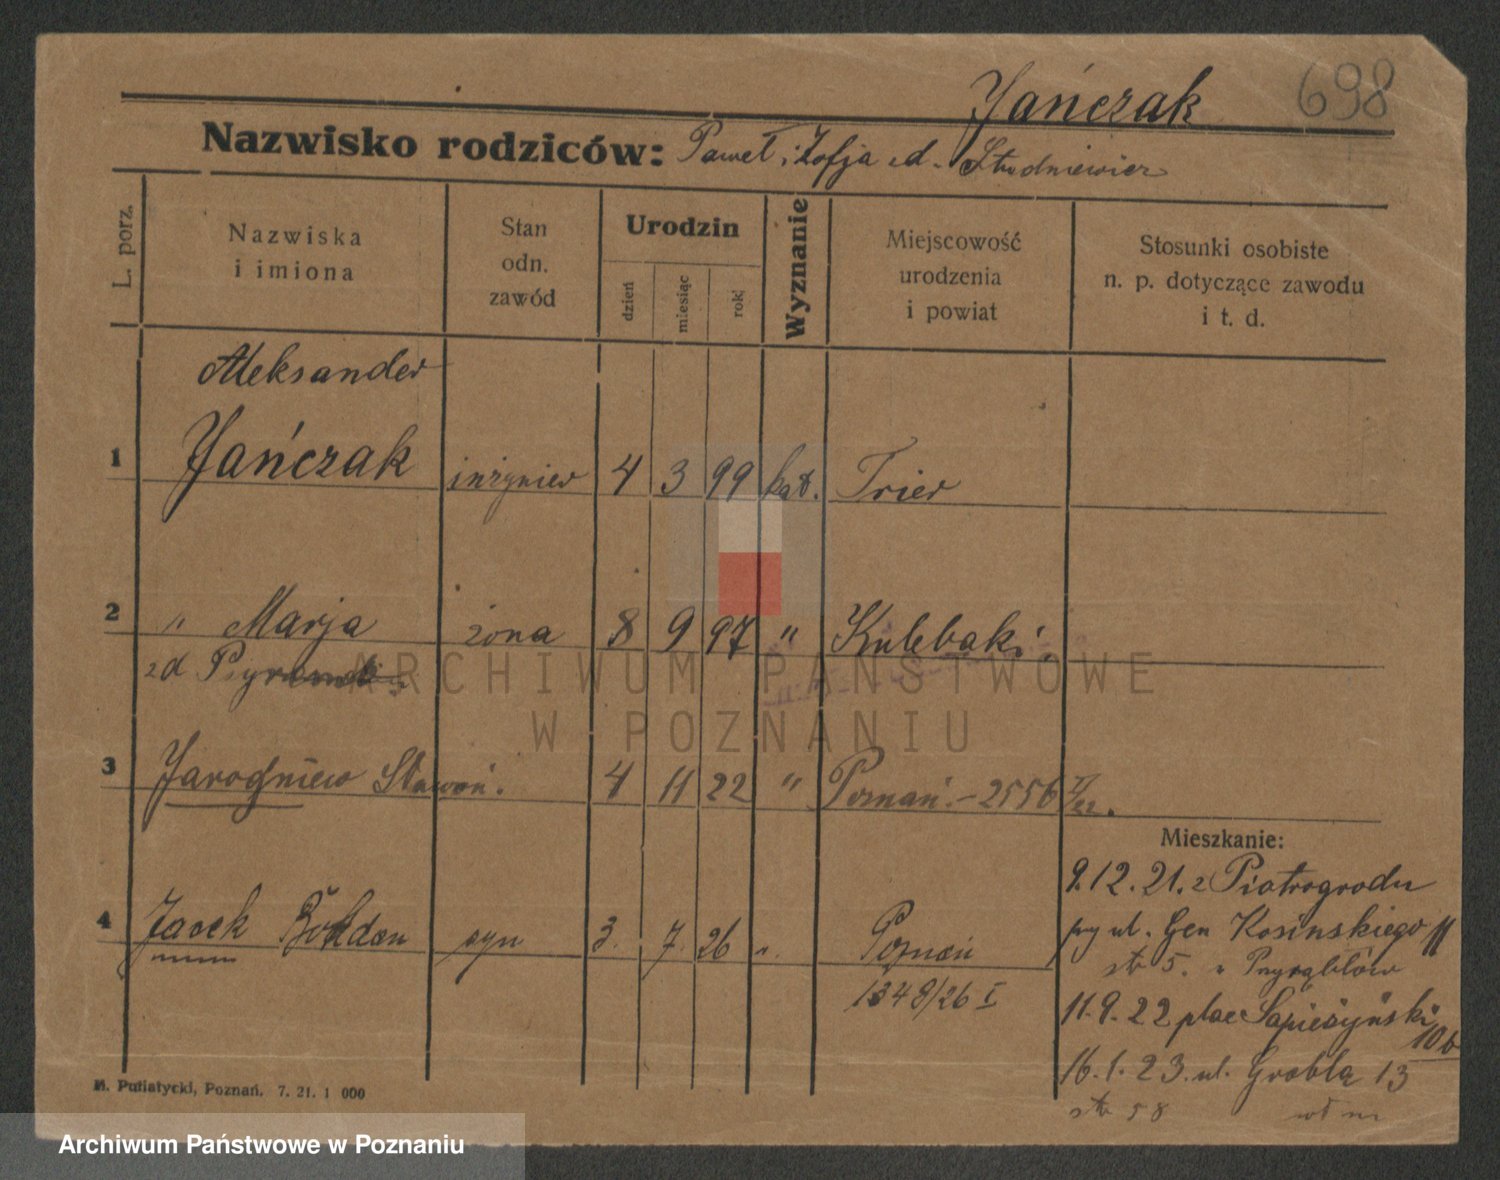 Jańczak 698
Nazwisko rodziców: Paweł i Zofja zd. Studniewicz
L. porz.
Nazwiska
i imiona
Stan
odn.
zawód
Urodzin
dzień
miesiąc
rok
Wyznanie
Miejscowość
urodzenia
i powiat
Stosunki osobiste
n. p. dotyczące zawodu
i t. d.
Aleksander
1 Jańczak inżynier 4 3 99 kat. Trier
2 " Marja żona 8 9 97 " Kulebaki
zd
3 Jarogniew 4 11 22 " Poznań - 2556
Mieszkanie:
9.12.21. z Piotrogrodu
4 Jacek Bohdan syn 3. 7. 26 ". Poznań
przy ul. Gen Kosinskiego 11
str 5.
1348/26 I
11.9.22 plac Sapieżyński
10b
16.1.23. ul. Grobla 13
str 58
M. Putiatycki, Poznań. 7. 21. 1 000
ARCHIWUM PAŃSTWOWE
W POZNANIU
Archiwum Państwowe w Poznaniu